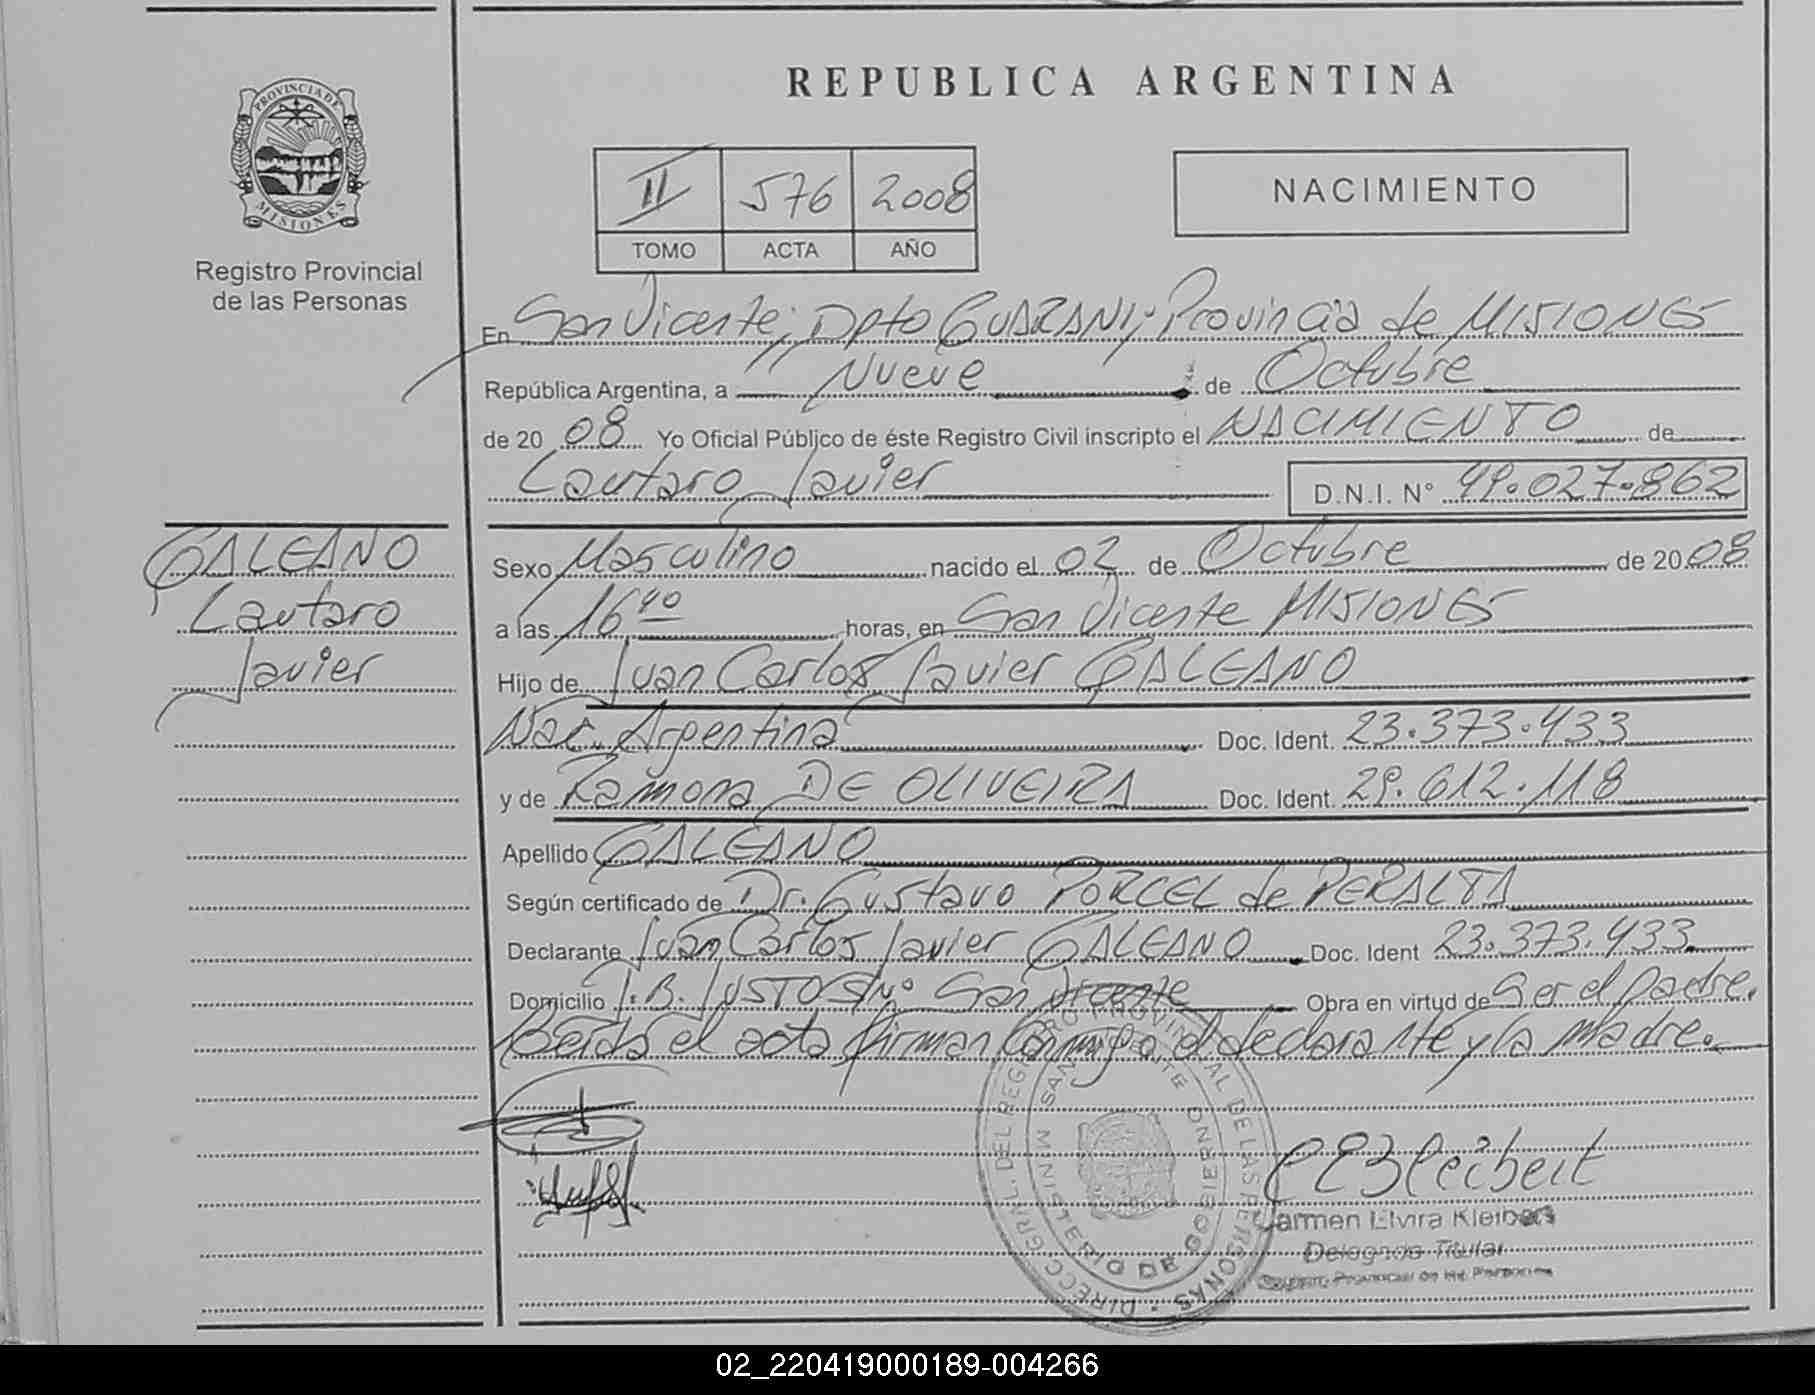 REPUBLICA ARGENTINA
PROVINCIA DE
MISIONES
Registro Provincial
de las Personas
II 576 2008
TOMO ACTA AÑO
NACIMIENTO
En San Vicente; Dpto GUARANI; Provincia de MISIONES
República Argentina, a Nueve de Octubre
de 2008 Yo Oficial Público de éste Registro Civil inscripto el NACIMIENTO de
Lautaro Javier D.N.I. N° 49.027.862
GALEANO
Lautaro
Javier
Sexo Masculino nacido el 02 de Octubre de 2008
a las 16 40 horas, en San Vicente MISIONES
Hijo de Juan Carlos Javier GALEANO
Nac. Argentina Doc. Ident. 23.373.433
y de Ramona DE OLIVEIRA Doc. Ident. 29.612.118
Apellido GALEANO
Según certificado de Dr. Gustavo PORCEL de PERALTA
Declarante Juan Carlos Javier GALEANO Doc. Ident 23.373.433
Domicilio J.B. JUSTO S/Nº San Vicente Obra en virtud de Ser el padre.
Leída el acta firman Conmigo, el declarante y la madre.
DIRECC. GRAL. DEL REGISTRO PROVINCIAL DE LAS PERSONAS
SAN VICENTE
MINISTERIO DE GOBIERNO
CEKleibert
Carmen Elvira Kleibert
Delegada Titular
Registro Provincial de las Personas
02_220419000189-004266